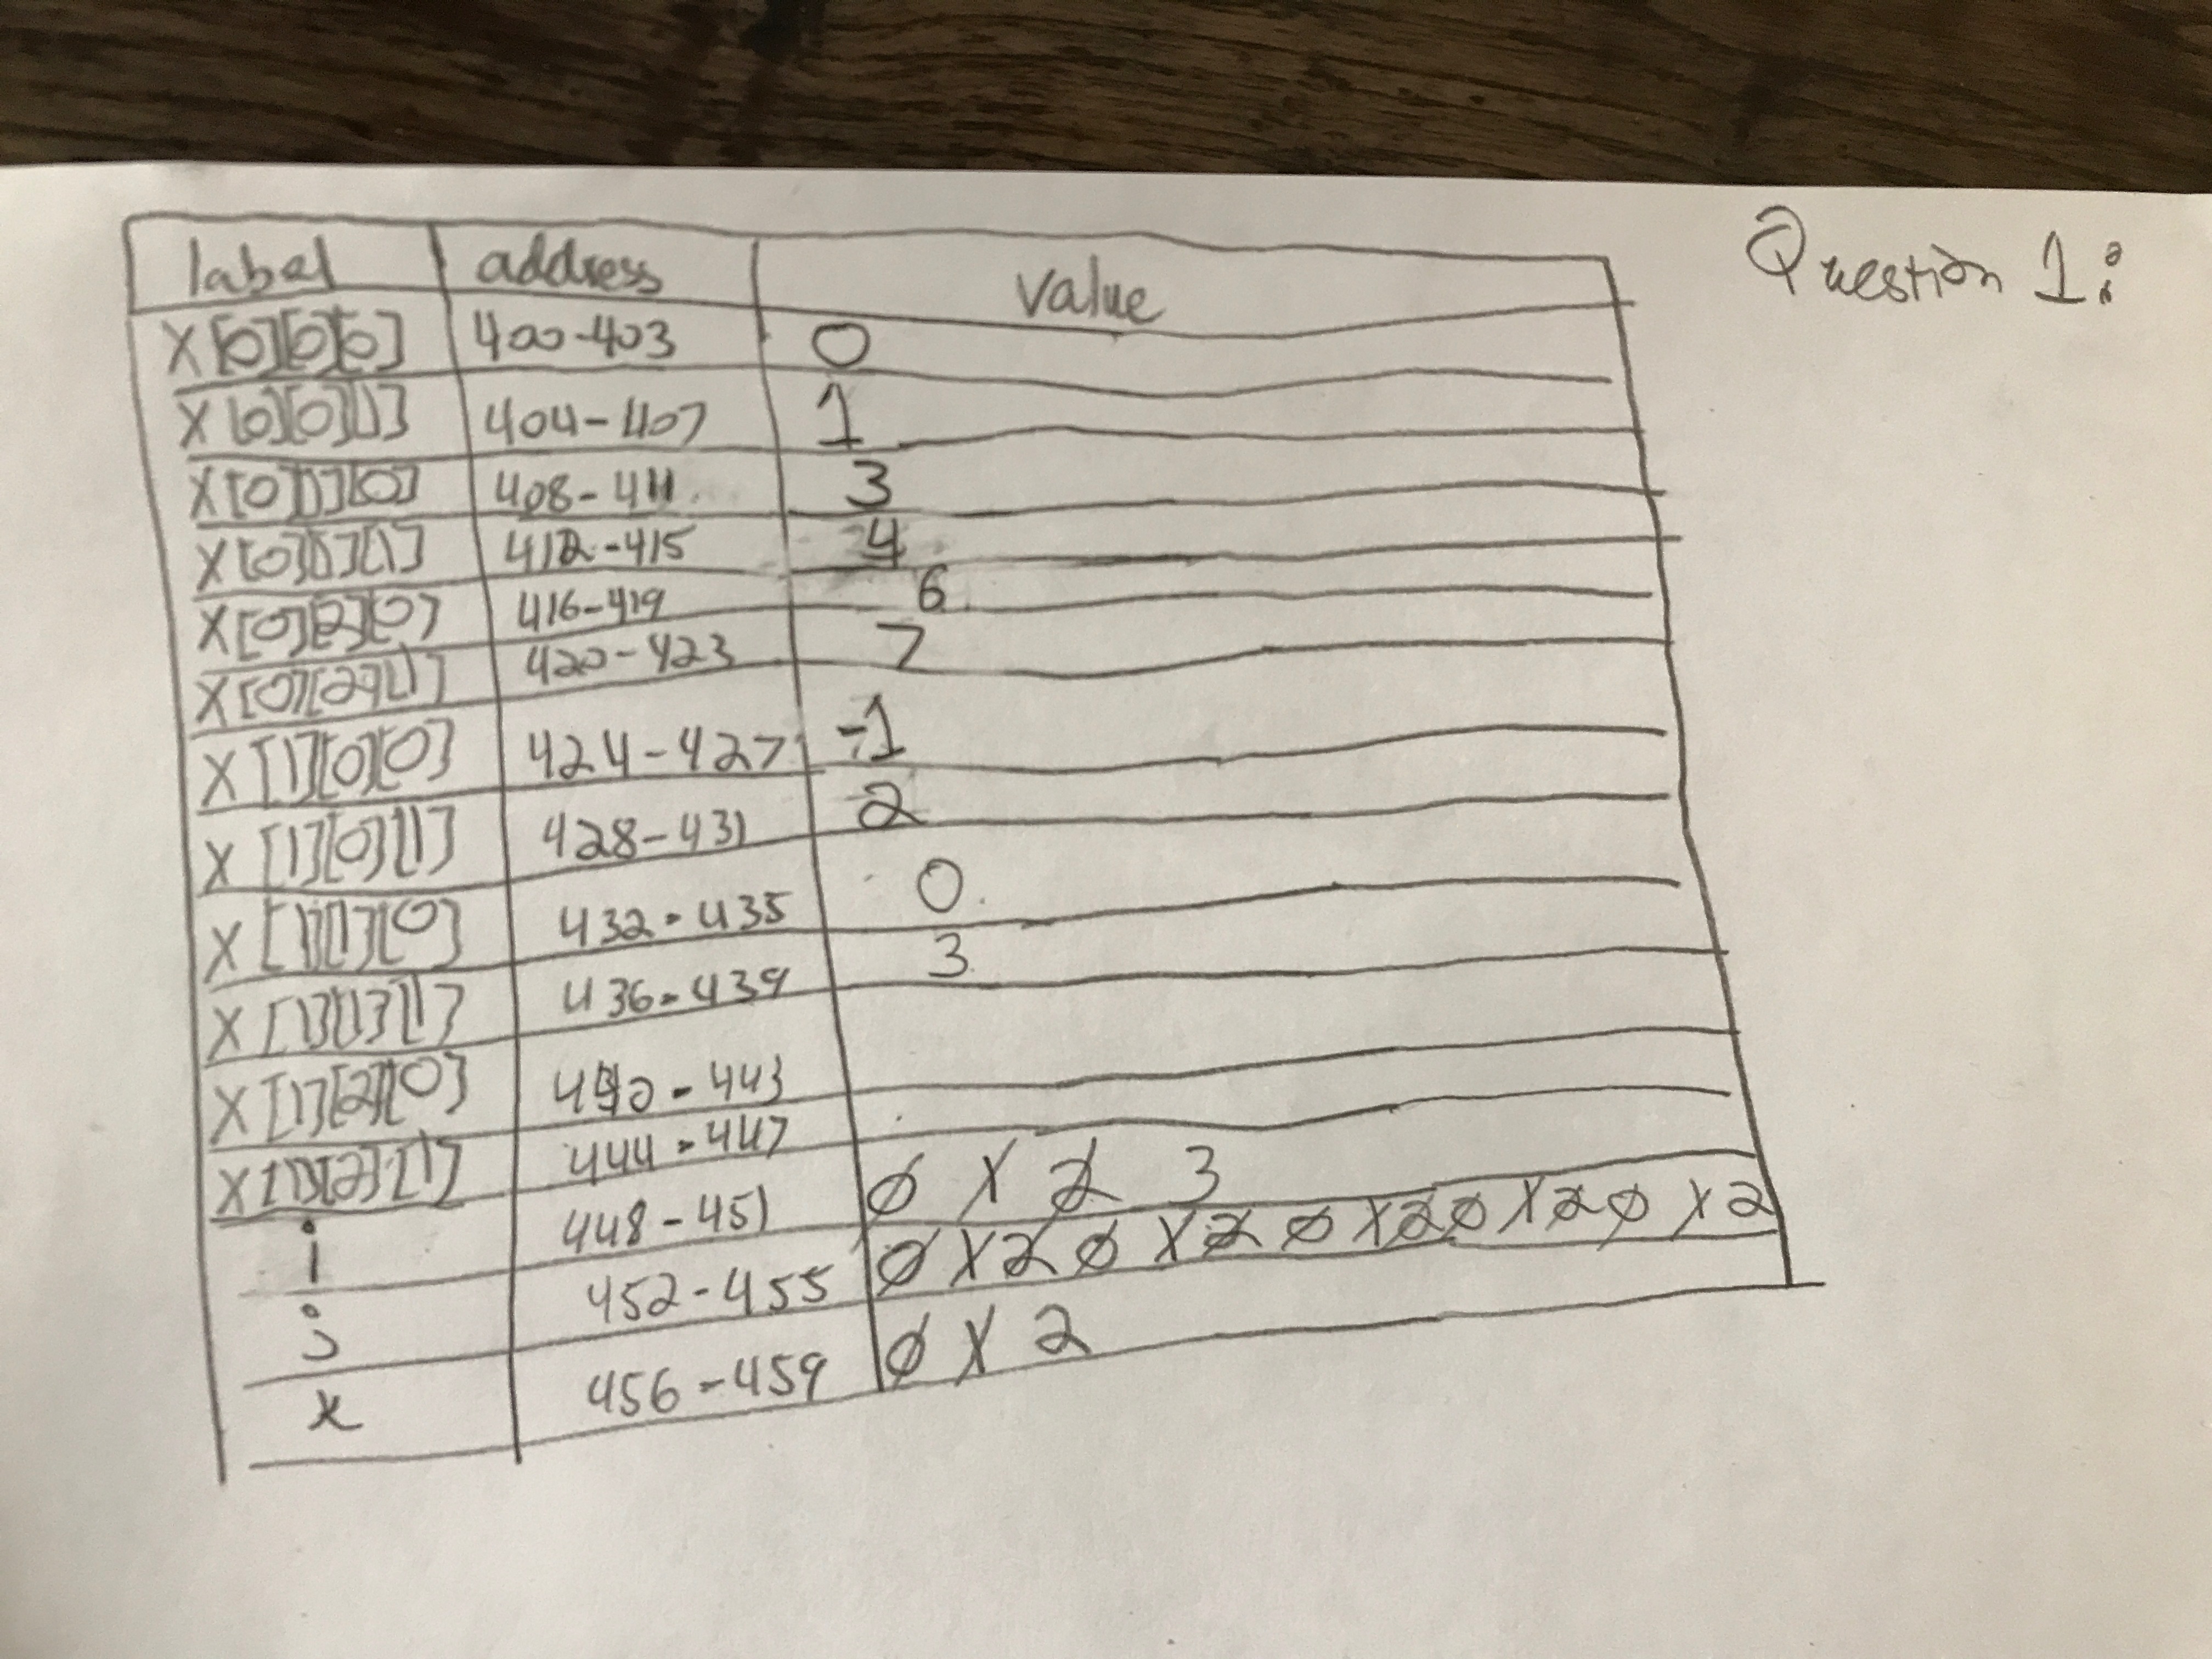 Question 1:
label address value
X[0][0][0] 400-403 0
X[0][0][1] 404-407 1
X[0][1][0] 408-411 3
X[0][1][1] 412-415 4
X[0][2][0] 416-419 6
X[0][2][1] 420-423 7
X[1][0][0] 424-427 -1
X[1][0][1] 428-431 2
X[1][1][0] 432-435 0
X[1][1][1] 436-439 3
X[1][2][0] 440-443
X[1][2][1] 444-447
i 448-451 0 1 2 3
j 452-455 0 1 2 0 1 2 0 1 2 0 1 2 0 1 2
x 456-459 0 1 2